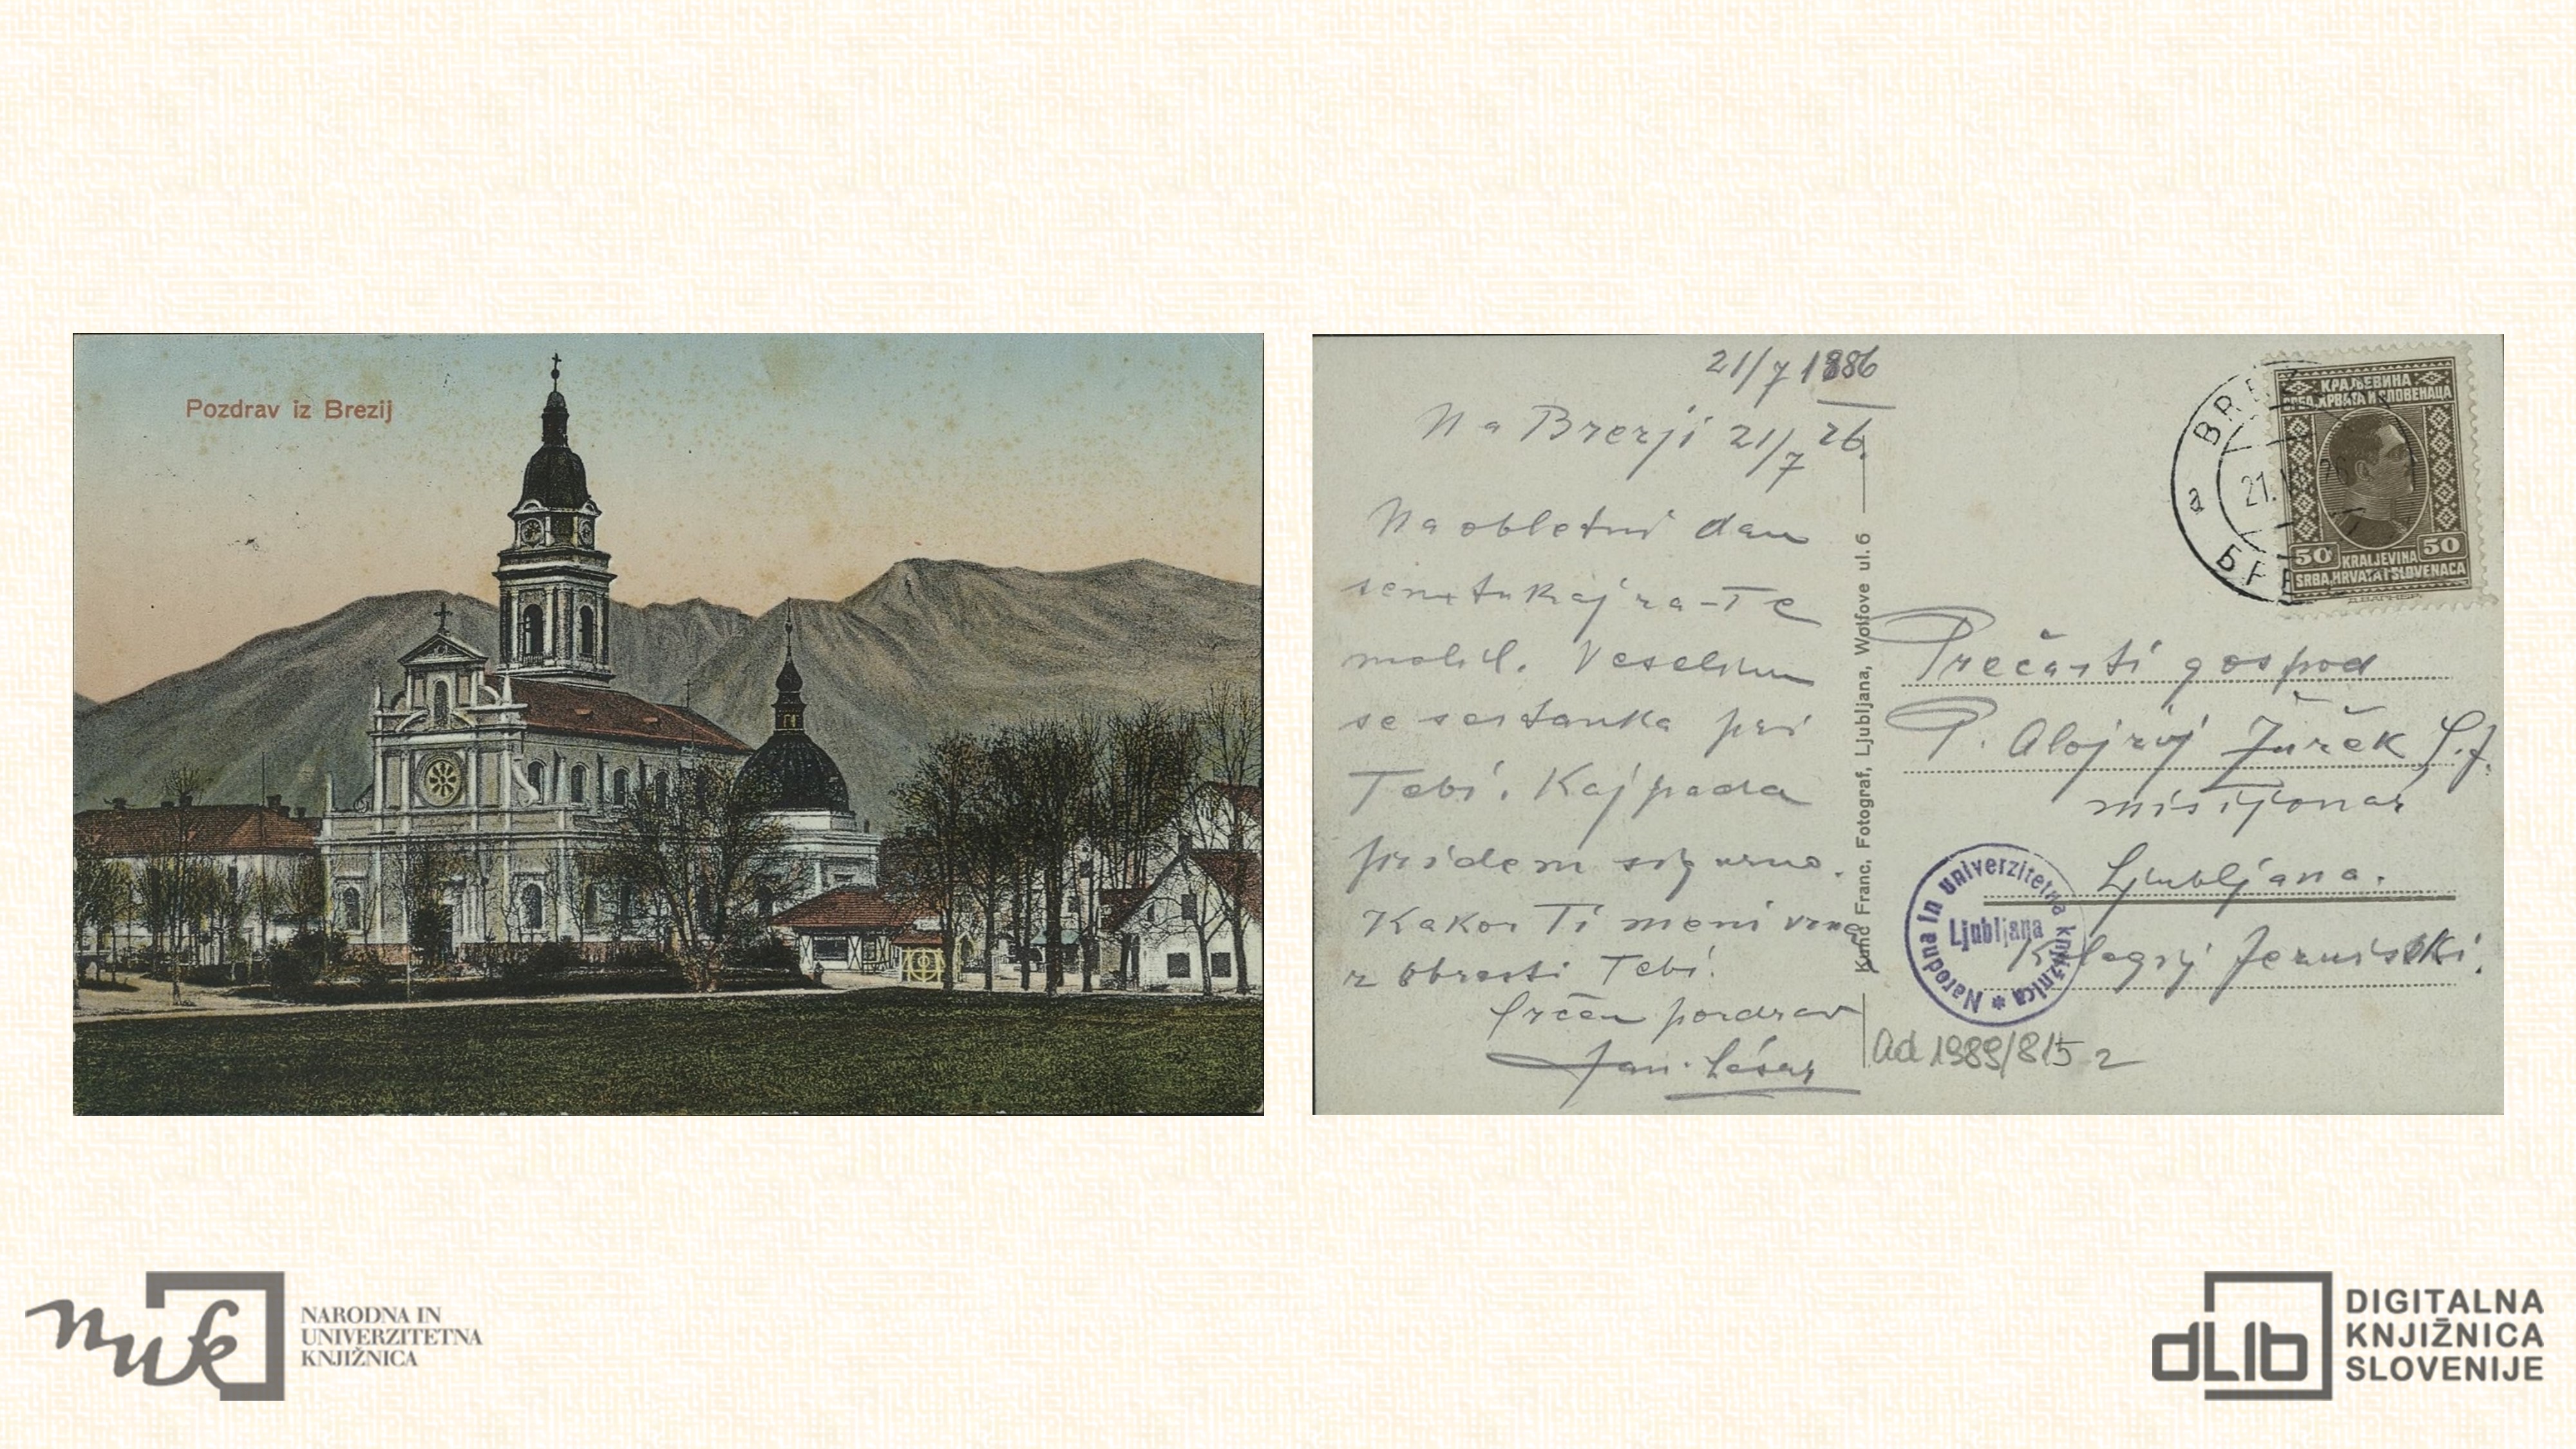 Pozdrav iz Brezij
21/7 1886
Na Brezji 21/7 26.
Na obletni dan
sem tukaj za-Te
molil. Veselim
se sestanka pri
Tebi. Kajpada
pridem sigurno.
Kakor Ti meni vrne
z obresti Tebi.
Srčen pozdrav
Jan.
Kund Franc, Fotograf, Ljubljana, Wolfove ul. 6
BRE
a
21.
БРЕ
КРАЉЕВИНА
СРБА, ХРВАТА И СЛОВЕНАЦА
50 KRALJEVINA 50
SRBA, HRVATA I SLOVENACA
Prečasti gospod
P. Alojzij Žužek S.J.
misijonar
Ljubljana.
Kolegij
Narodna in univerzitetna knjižnica *
Ljubljana
ad 1989/815 2
nuk
NARODNA IN
UNIVERZITETNA
KNJIŽNICA
dLib
DIGITALNA
KNJIŽNICA
SLOVENIJE